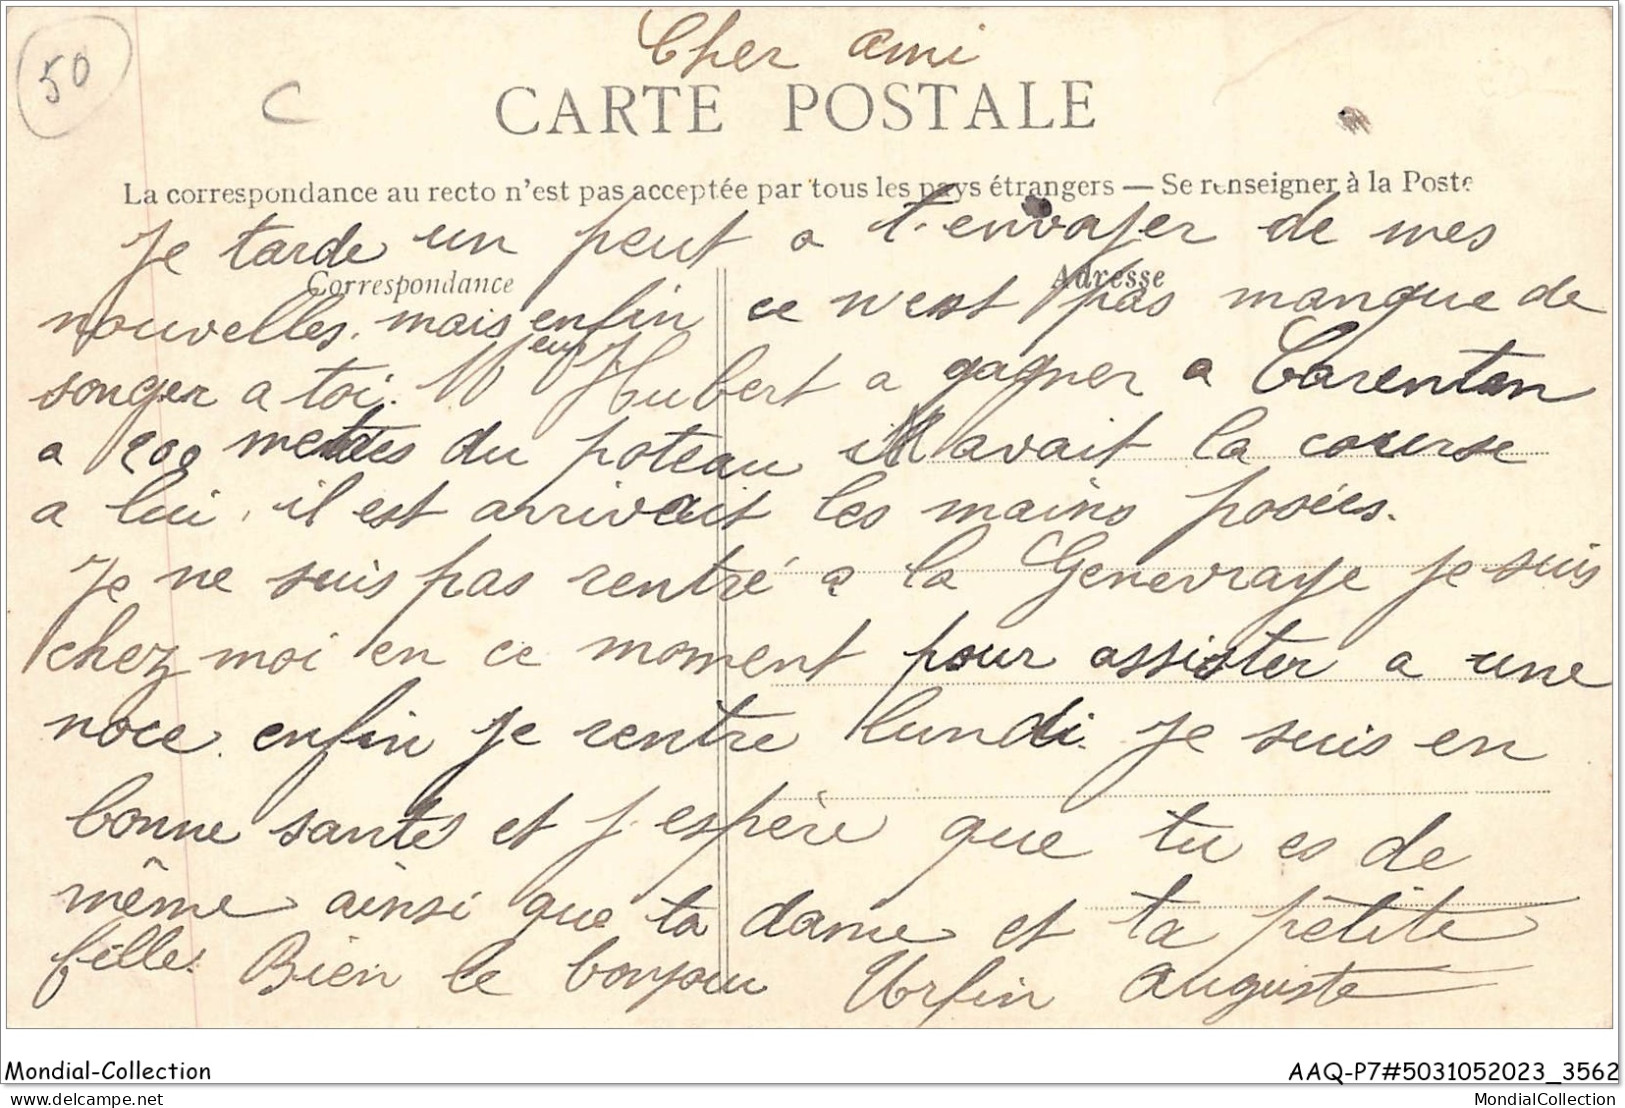 50
C
Cher ami
CARTE POSTALE
La correspondance au recto n'est pas acceptée par tous les pays étrangers — Se renseigner à la Poste
Je tarde un peut a t'envoyer de mes
Correspondance
Adresse
nouvelles. mais enfin ce n'est pas manque de
songer a toi. Hubert a gagner a Carentan
a 200 metres du poteau il avait la course
a lui. il est arrivait les mains posées.
Je ne suis pas rentré a la Genevraye je suis
chez moi en ce moment pour assister a une
noce. enfin je rentre lundi. Je suis en
bonne santés et j'espère que tu es de
même ainsi que ta dame et ta petite
fille. Bien le bonjour Urfin Auguste
Mondial-Collection
AAQ-P7#5031052023_3562
delcampe.net
MondialCollection